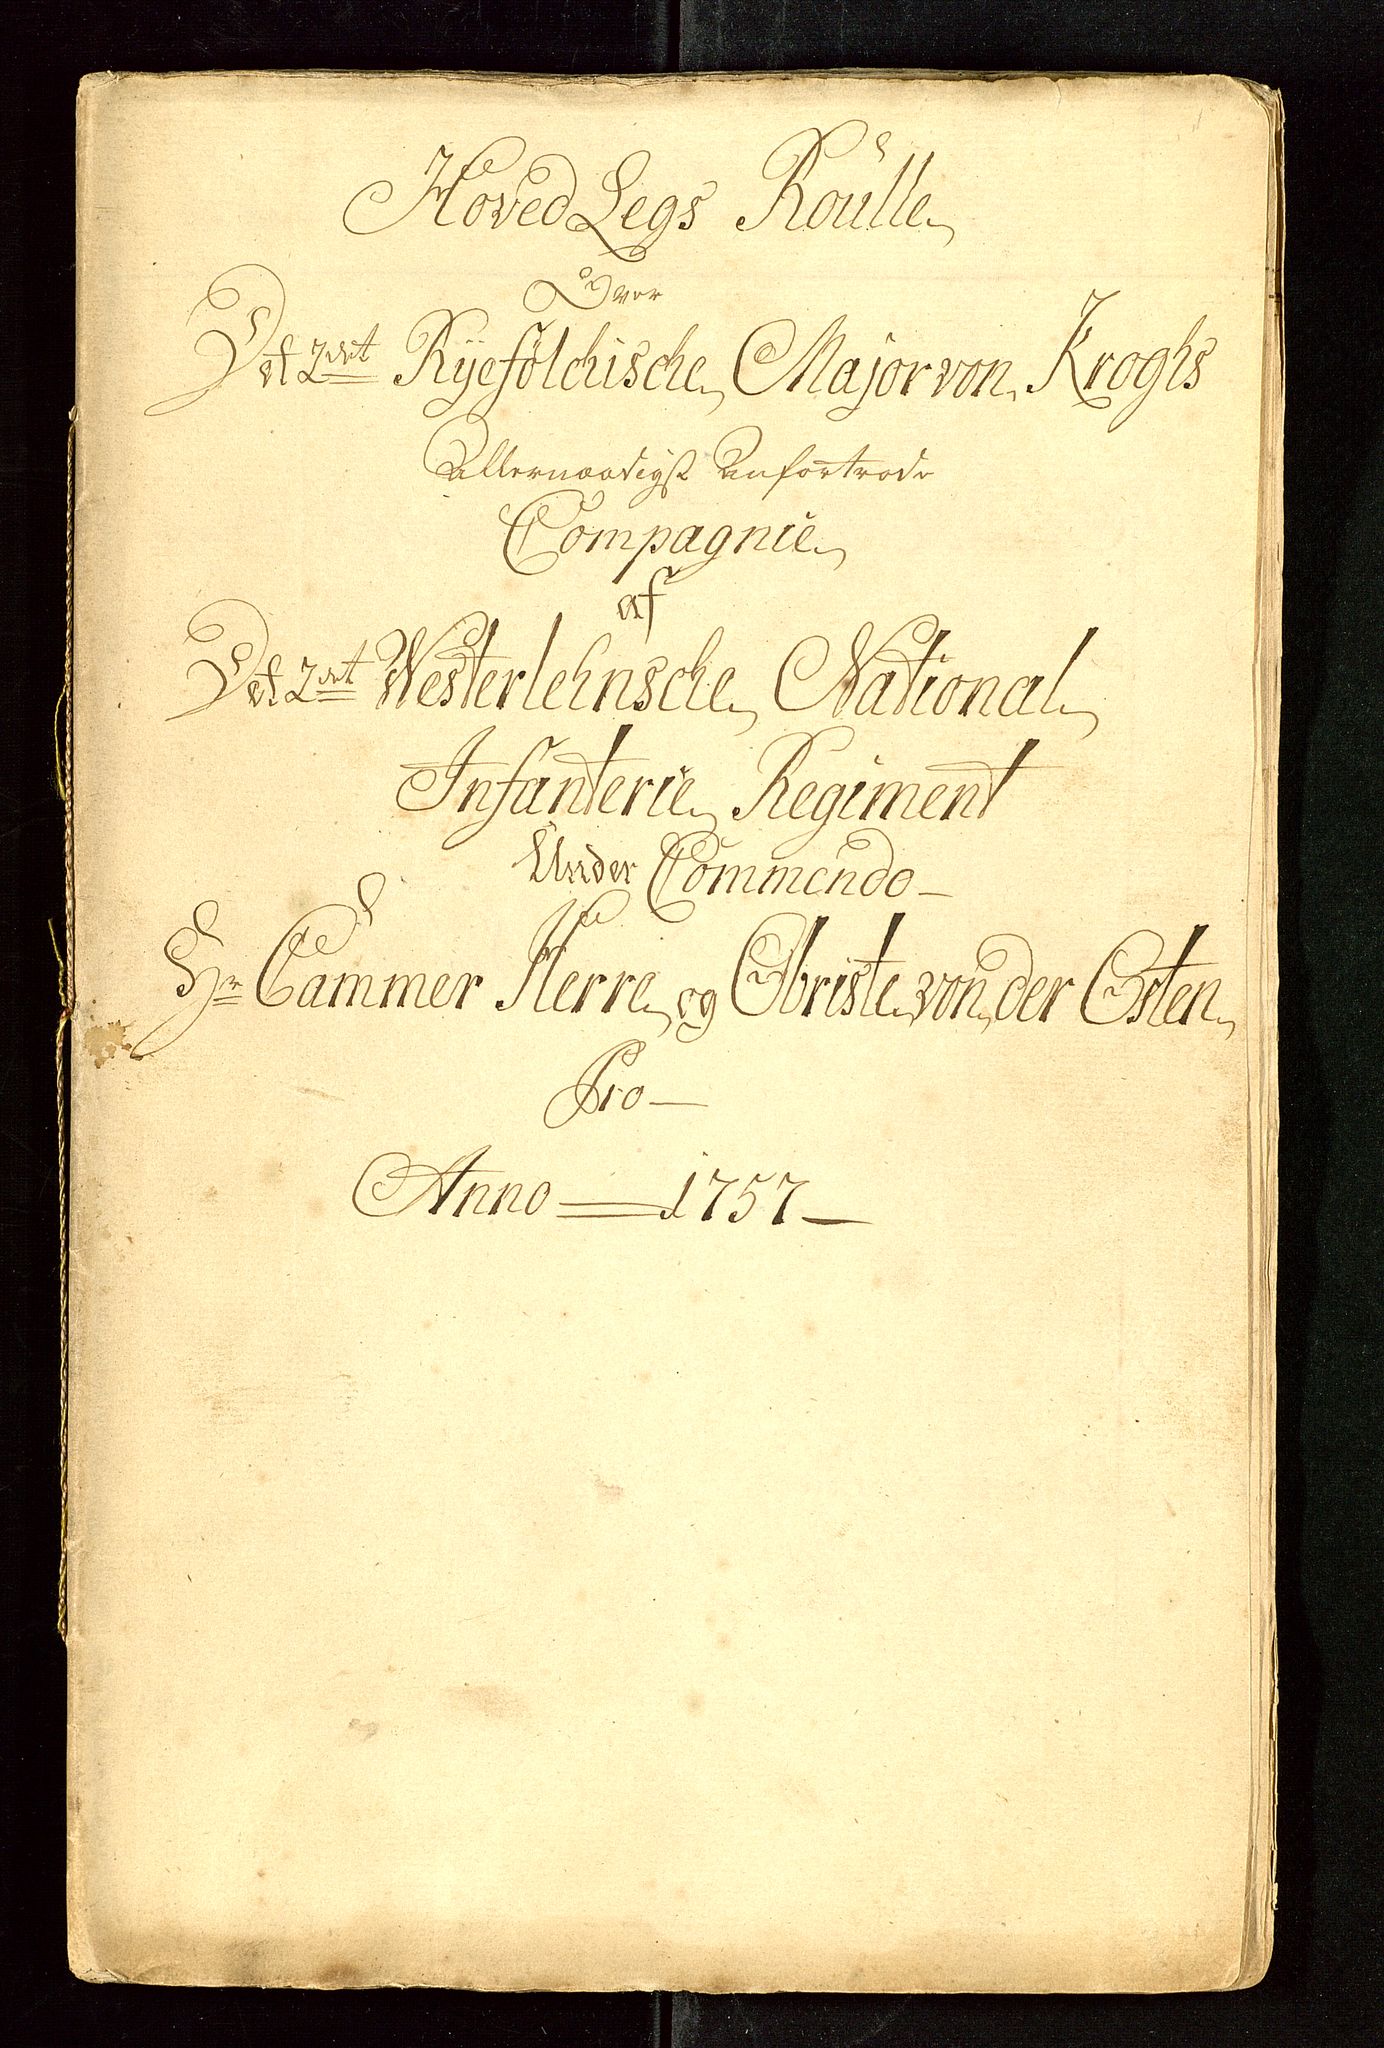 Hoved Legs Roülle
Over
Det 2det Ryefölckische Major von Kroghs
Allernaadigst Anfortrode
Compagnie
af
Det 2det Westerlehnsche National
Infanterie Regiment
Under Commendo
Hr Cammer Herre og Obriste von der Osten
Pro
Anno 1757